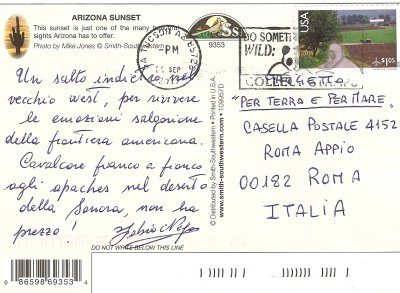 ARIZONA SUNSET
This sunset is just one of the many
sights Arizona has to offer.
Photo by Mike Jones © Smith-Southwestern
TUCSON AZ 857
PM
SEP
9353
DO SOMETHING
WILD:
COLLECT STAMPS
USA
$1.05
Un salto indietro nel
vecchio west, per rivivere
le emozioni salgariane
della frontiera americana.
Cavalcare fianco a fianco
agli apaches nel deserto
della Sonora, non ha
prezzo!
DO NOT WRITE BELOW THIS LINE
0 86598 69353 4
© Distributed by Smith-Southwestern • Printed in U.S.A.
www.smith-southwestern.com • 109857D
PROGETTO
"PER TERRA E PER MARE"
CASELLA POSTALE 4152
ROMA APPIO
00182 ROMA
ITALIA